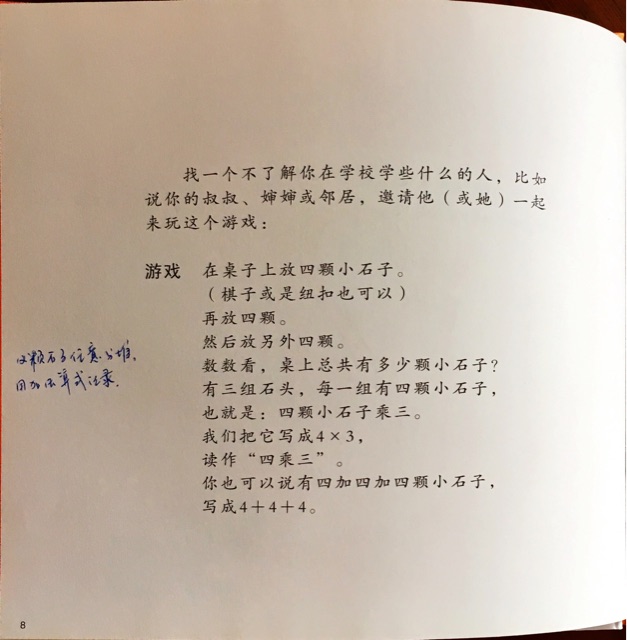 找一个不了解你在学校学些什么的人，比如
说你的叔叔、婶婶或邻居，邀请他（或她）一起
来玩这个游戏：
游戏 在桌子上放四颗小石子。
（棋子或是纽扣也可以）
再放四颗。
然后放另外四颗。
数数看，桌上总共有多少颗小石子？
有三组石头，每一组有四颗小石子，
也就是：四颗小石子乘三。
我们把它写成4×3，
读作“四乘三”。
你也可以说有四加四加四颗小石子，
写成4＋4＋4。
颗石子任意分堆，
用加法算式记录.
8